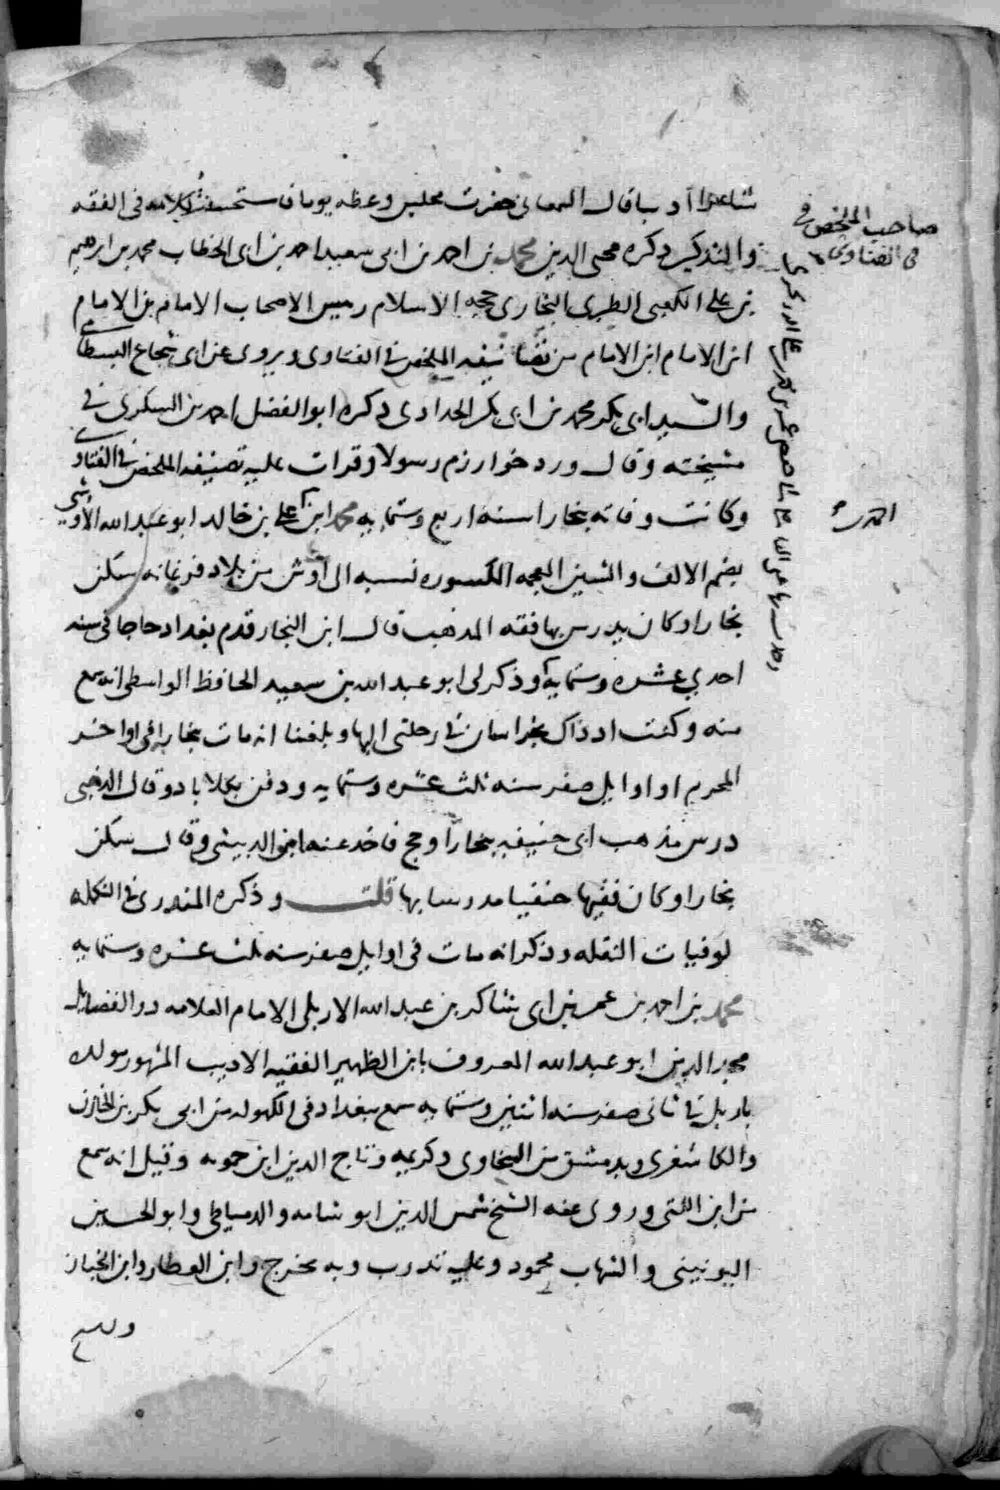 شاعرا اديبا قال السمعانى حضرت مجلس وعظه يوما فاستحسنت كلامه فى الفقه
والتذكير ذكره محيى الدين محمد بن احمد بن ابى سعيد احمد بن ابى الخطاب محمد بن ابرهيم
بن على الكعبى الطبرى البخارى حجه الاسلام رييس الاصحاب الامام بن الامام
ابن الامام ابن الامام من تصانيفه الملخص فى الفتاوى ويروى عن ابى شجاع البسطامى
والسيد ابى بكر محمد بن ابى بكر الحدادى ذكره ابو الفضل احمد بن السكرى فى
مشيخته وقال ورد خوارزم رسولا وقرات عليه تصنيفه الملخص فى الفتاوى
وكانت وفاته ببخارا سنه اربع وستمايه محمد ابن على بن خالد ابو عبد الله الأوشى
بضم الالف والشين المعجمه المكسوره نسبه الى اوش من بلاد فرغانه سكن
بخارا وكان يدرس بها فقه المذهب قال ابن النجار قدم بغداد حاجا فى سنه
احدى عشره وستمايه وذكر لى ابو عبد الله بن سعيد الحافظ الواسطى انه سمع
منه وكنت اذ ذاك بخراسان فى رحلتى اليها وبلغنا انه مات ببخارا فى اواخر
المحرم او اوايل صفر سنه ثلث عشره وستمايه ودفن بكلاباد وقال الذهبى
درس مذهب ابى حنيفه ببخارا وحج فاخذ عنه ابن الدبيثى وقال سكن
بخارا وكان فقيها حنفيا مدرسا بها قلت وذكره المنذرى فى التكمله
لوفيات النقله وذكر انه مات فى اوايل صفر سنه ثلث عشره وستمايه
محمد بن احمد بن عمر بن ابى شاكر بن عبد الله الاربلى الامام العلامه ذو الفضايل
مجد الدين ابو عبد الله المعروف بابن الظهير الفقيه الاديب المشهور مولده
باربل فى ثانى صفر سنه اثنين وستمايه سمع ببغداد فى الكهوله من ابى بكر بن الخازن
والكاشغرى وبدمشق من السخاوى وكريمه وتاج الدين ابن حمويه وقيل انه سمع
من ابن اللتى وروى عنه الشيخ شمس الدين ابو شامه والدمياطى وابو الحسين
اليونينى والشهاب محمود وعليه تدرب وبه تخرج وابن العطار وابن الخباز
صاحب الملخص فى
فى الفتاوى